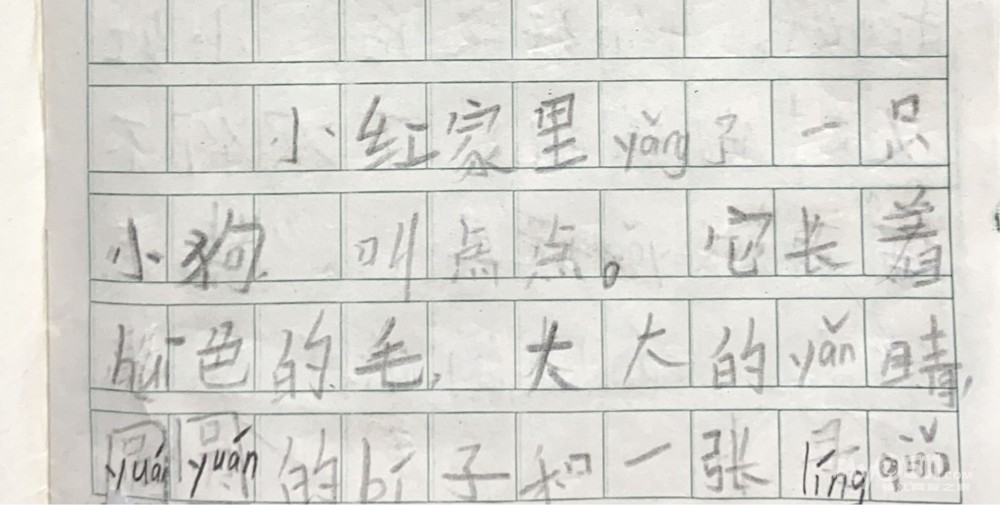 小红家里yǎng了一只
小狗, 叫点点。它长着
huī色的毛, 大大的yǎn睛,
yuányuán的bí子和一张líng